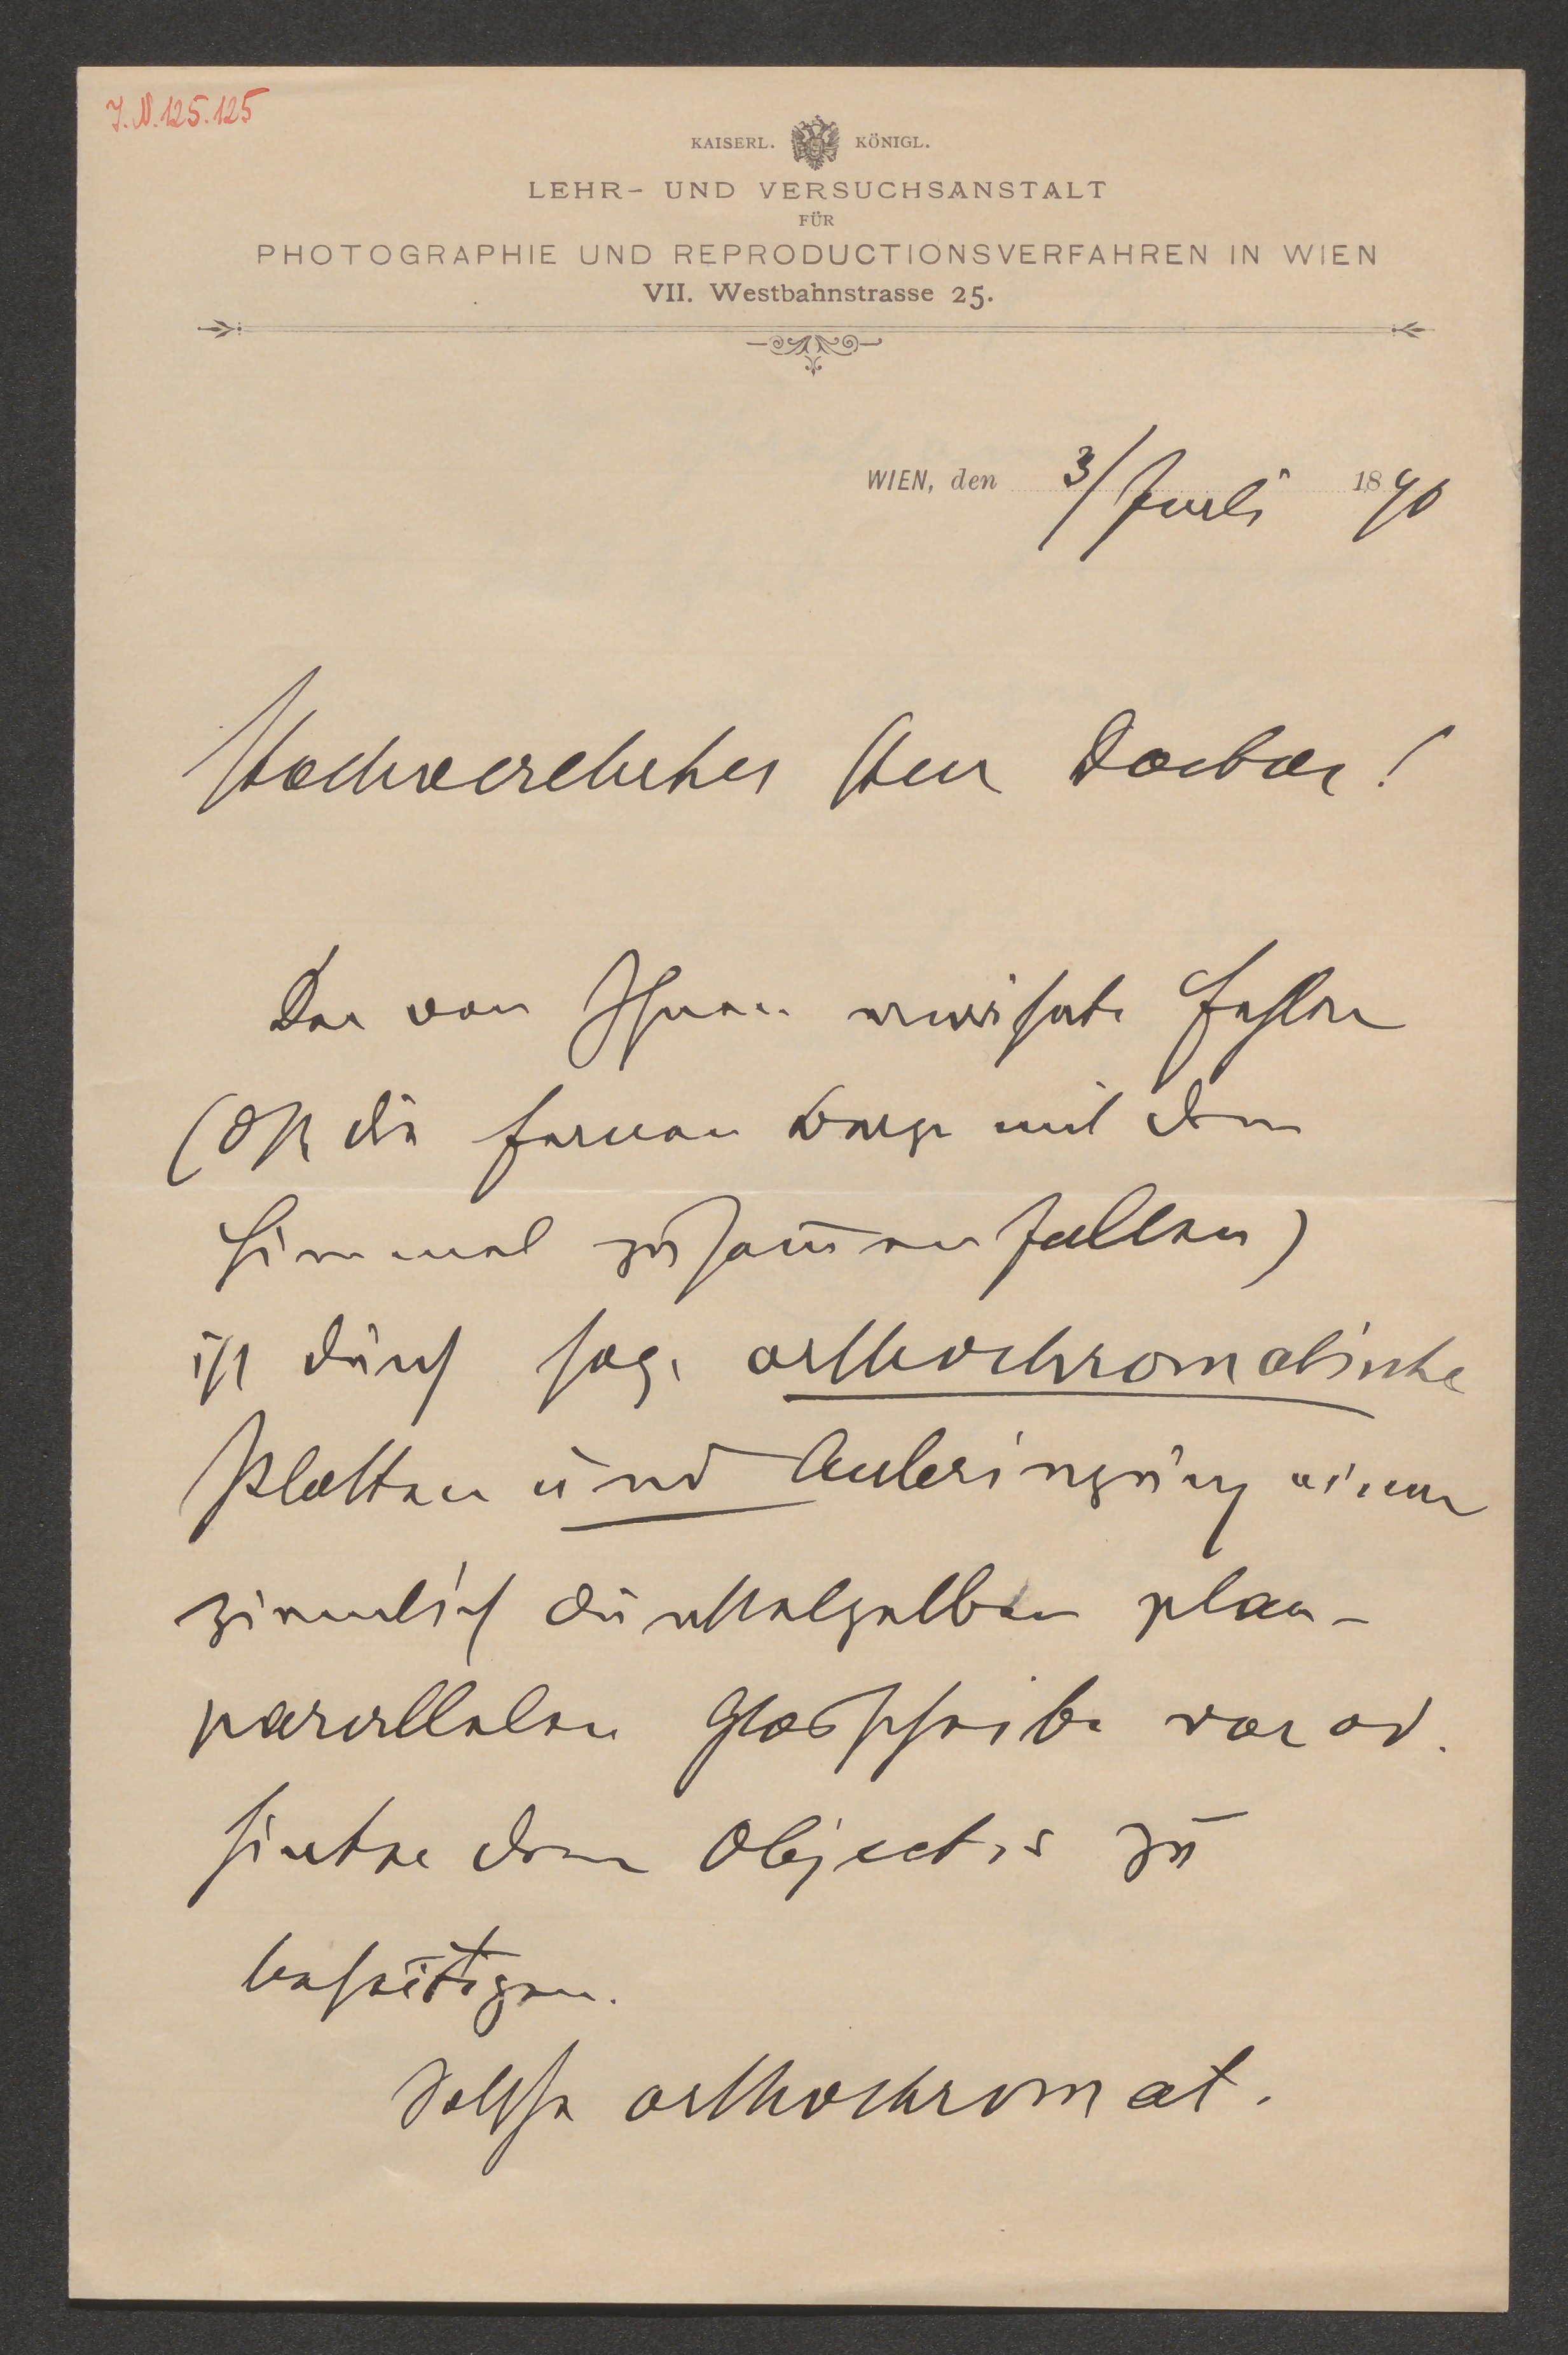 J.N. 125.125
KAISERL. KÖNIGL.
LEHR- UND VERSUCHSANSTALT
FÜR
PHOTOGRAPHIE UND REPRODUCTIONSVERFAHREN IN WIEN
VII. Westbahnstrasse 25.
WIEN, den 3/Juli 1890
Hochverehrter Herr Doctor!
Der von Ihnen Fehler
(daß die fernen Berge mit dem
Himmel zusammenfallen)
ist durch sog. orthochromatische
Platten und Anbringung einer
ziemlich dunkelgelben plan-
parallelen Glasscheibe vor od.
hinter dem Objectiv zu
beseitigen.
Solche orthochromat.